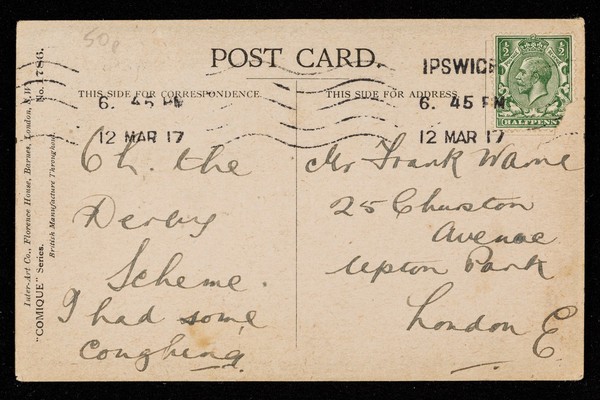 50p
POST CARD.
IPSWICH
½ ½
HALFPENNY
THIS SIDE FOR CORRESPONDENCE.
THIS SIDE FOR ADDRESS.
6. 45 PM
12 MAR 17
6. 45 PM
12 MAR 17
Oh. the
Derby
Scheme.
I had some
coughing
Mr Frank Warne
25 Churston
Avenue
Upton Park
London E
Inter-Art Co., Florence House, Barnes, London, S.W.
"COMIQUE" Series.
No. 1786.
British Manufacture Throughout.